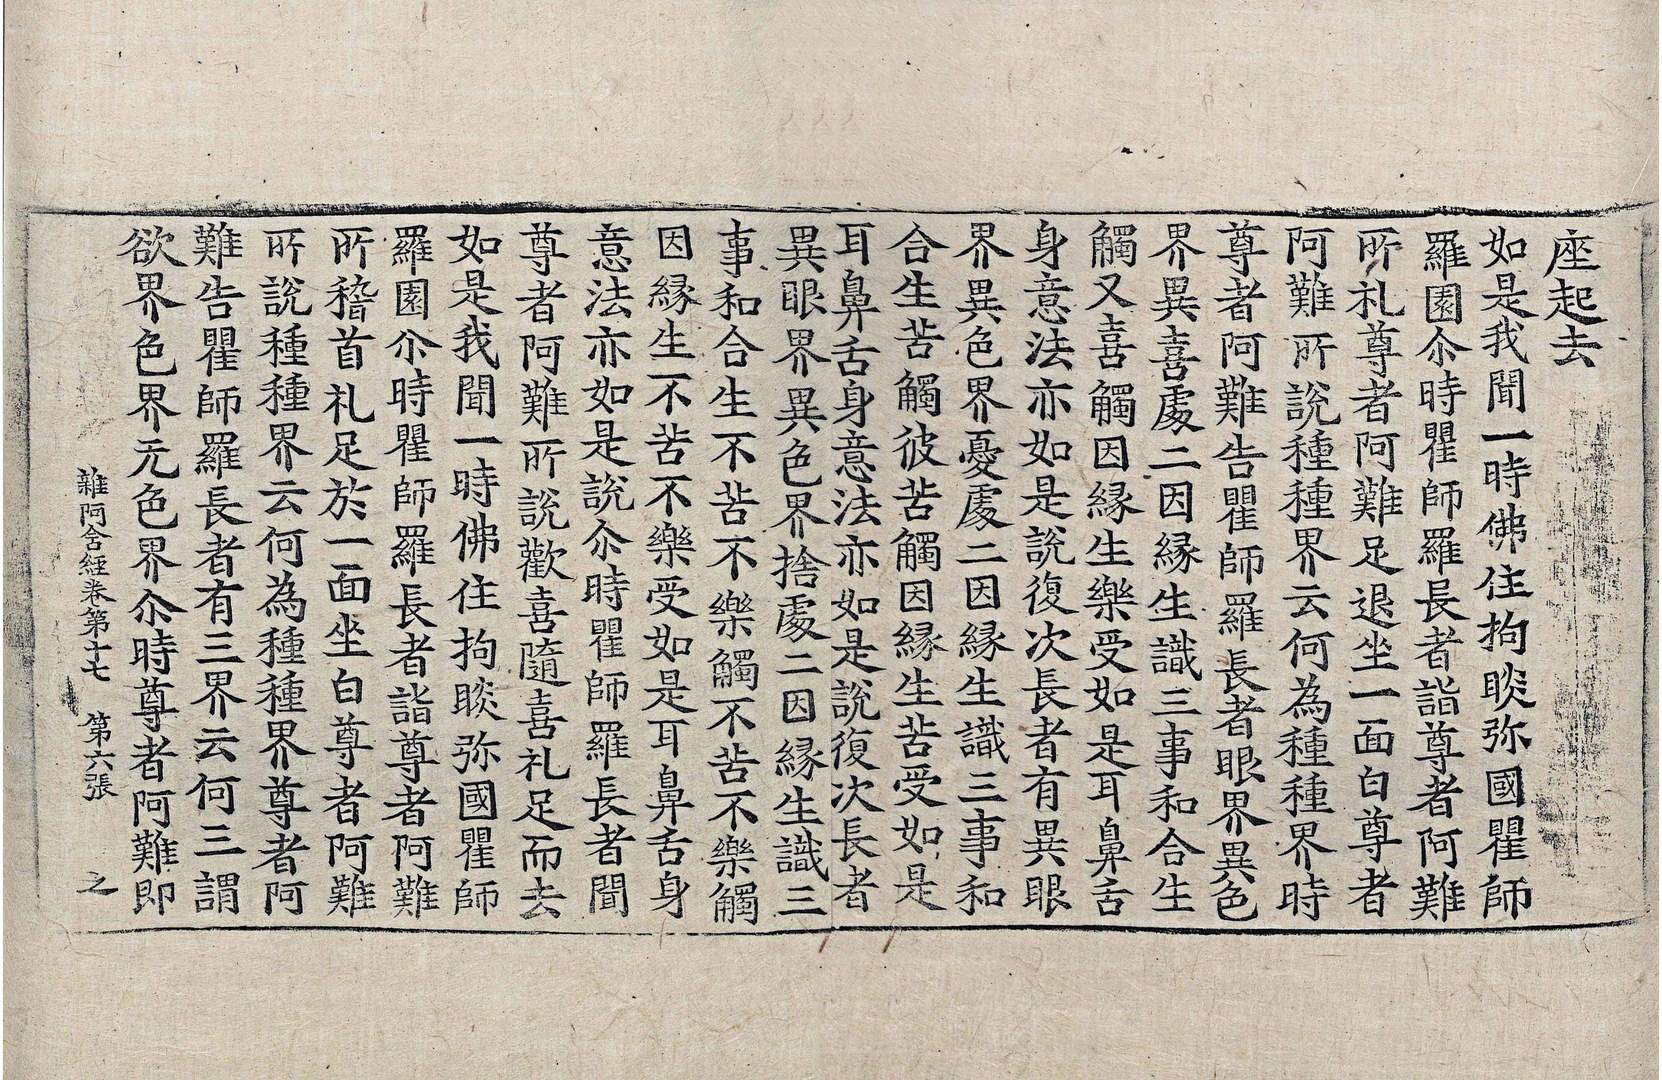 座起去
如是我聞一時佛住拘睒弥國瞿師
羅園尒時瞿師羅長者詣尊者阿難
所礼尊者阿難足退坐一面白尊者
阿難所說種種界云何為種種界時
尊者阿難告瞿師羅長者眼界異色
界異喜處二因緣生識三事和合生
觸又喜觸因緣生樂受如是耳鼻舌
身意法亦如是說復次長者有異眼
界異色界憂處二因緣生識三事和
合生苦觸彼苦觸因緣生苦受如是
耳鼻舌身意法亦如是說復次長者
異眼界異色界捨處二因緣生識三
事和合生不苦不樂觸不苦不樂觸
因緣生不苦不樂受如是耳鼻舌身
意法亦如是說尒時瞿師羅長者聞
尊者阿難所說歡喜隨喜礼足而去
如是我聞一時佛住拘睒弥國瞿師
羅園尒時瞿師羅長者詣尊者阿難
所稽首礼足於一面坐白尊者阿難
所說種種界云何為種種界尊者阿
難告瞿師羅長者有三界云何三謂
欲界色界无色界尒時尊者阿難即
雜阿含経卷第十七 第六張 之